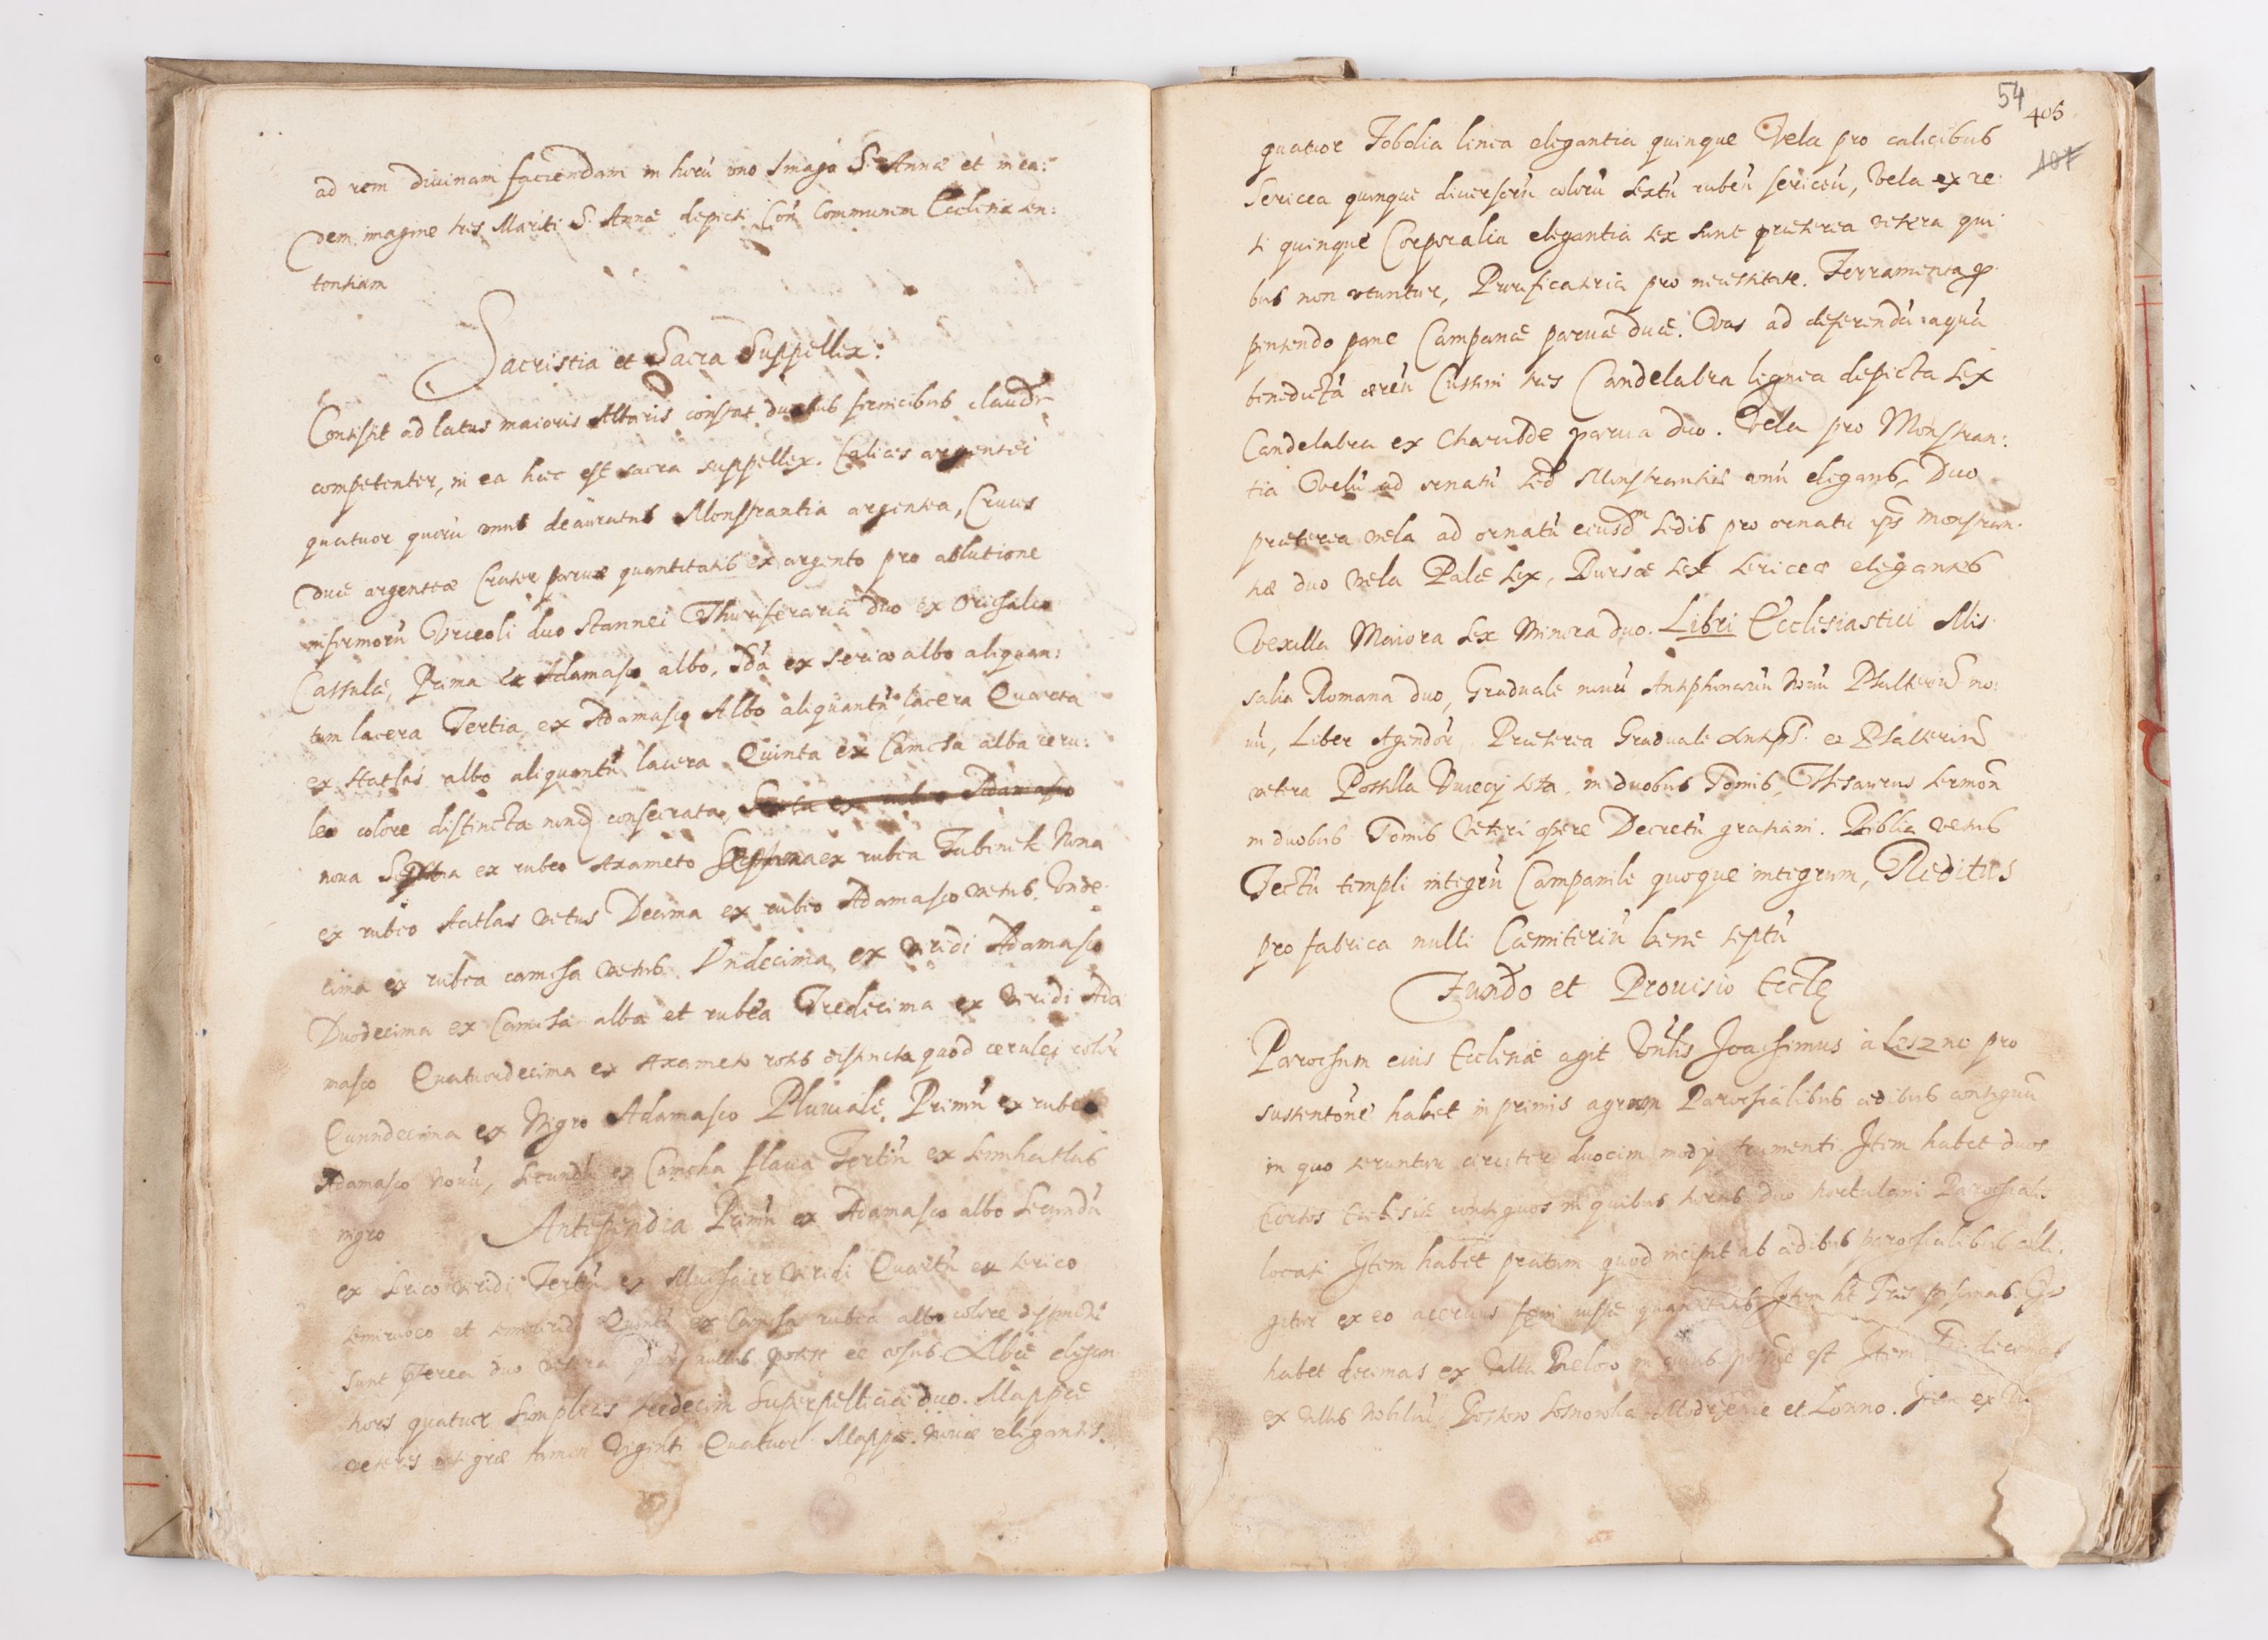 ad rem diuinam faciendam in horũ uno Imago S. Annæ et in ea:
dem imagine tres Mariti S. Annæ depicti Coñ Communem Ecclesiæ sen:
tentiam
Sacristia et Sacra Suppellex:
Consistit ad latus maioris Altaris constat duobus fornicibus claudr
competenter, in ea hæc est sacra suppellex. Calices argentei
quatuor quorũ unus deauratus Monstrantia argentea, Cruces
duæ argenteæ Crater paruæ quantitatis ex argento pro ablutione
infirmorũ Vrceoli duo stannei Thuriferaria duo ex Orichalco
Cassulæ, Prima ex Adamasco albo, 2da ex serico albo aliquan:
tum lacera Tertia ex Adamasco Albo aliquantũ lacera Quarta
ex Hatlas albo aliquantũ lacera Quinta ex Camcha alba ceru:
leo colore distincta nondũ consecrata, Sexta ex rubeo Adamasco
noua Septima ex rubeo Axameto ex rubea Tabinek Nona
ex rubeo Hatlas vetus Decima ex rubeo Adamasco vetus. Unde:
cima ex rubea camcha vetus. Undecima ex viridi Adamasco
Duodecima ex Camcha alba et rubea Tredecima ex viridi Ada
masco Quatuordecima ex Axameto distincta quod cerulei colore
Quindecima ex Nigro Adamasco Pluuiale. Primũ ex rubeo
Adamasco nouũ, secundũ ex Camcha flaua Tertiũ ex semihatlas
nigro Antipendia Primũ ex Adamasco albo Secundũ
ex serico viridi Tertiũ ex Muchaier viridi Quartũ ex serico
semirubeo et semiviridi Quintũ ex Camcha rubea albo colore
sunt pterea duo vetera nullus potest eẽ usus. Albæ elegan
tiores quatuor simplices sedecim Superpellicia duo. Mappæ
veteres integræ tamen Viginti Quatuor Mappæ nouæ elegantes
54
405
107
quatuor Tobolia linea elegantia quinque Vela pro calicibus
sericea quinque diuersorũ colorũ sextũ rubeũ sericeũ, Vela ex re
ti quinque Corporalia elegantia sex sunt præterea vetera qui
bus non utuntur, Purificatoria pro necessitate. Ferramenta p
pinsendo pane Campanæ paruæ duæ. Vas ad deferendũ aquã
benedictã æreũ Cussini tres Candelabra lignea depicta sex
Candelabra ex Charibde parua duo. Vela pro Monstran:
tia Velũ ad ornatũ sed Monstrantiæ unũ elegans, Duo
præterea vela ad ornatũ eiusdm sedis pro ornatu ips Monstran
tiæ duo vela Palæ sex, Bursæ sex sericeæ elegantes
Vexilla Maiora sex Minora duo. Libri Ecclesiastici Mis
salia Romana duo, Graduale nouũ Antiphonariũ Nouũ Psalteriũ no:
uũ, Liber Agendor, Præterea Graduale Antiph. et Psalteriũ
vetera Postilla in duobus Tomis, Thesaurus sermon
in duobus Tomis Veteri opere Decretũ gratiani. Biblia vetus
Tectũ templi integrũ Campanile quoque integrum, Reditus
pro fabrica nulli Cæmiteriũ bene septũ
Fundo et Prouisio Eccle
Parochum eius Ecclesiæ agit Vnlis Joachimus a Leszno pro
sustentone habet in primis agrum Parochialibus ædibus contiguũ
in quo seruntur circiter duocim modij frumenti. Item habet duos
hortos Ecclesiæ contiguos in quibus horis duo hortulani Parochiales
locati Item habet pratum quod incipit ab ædibus parochialibus colli
gitur ex eo aceruus feni Item ht Tres piscinas. It
habet decimas ex Villa est Item
ex Villis Nobiliũ et Lonno. Item ex